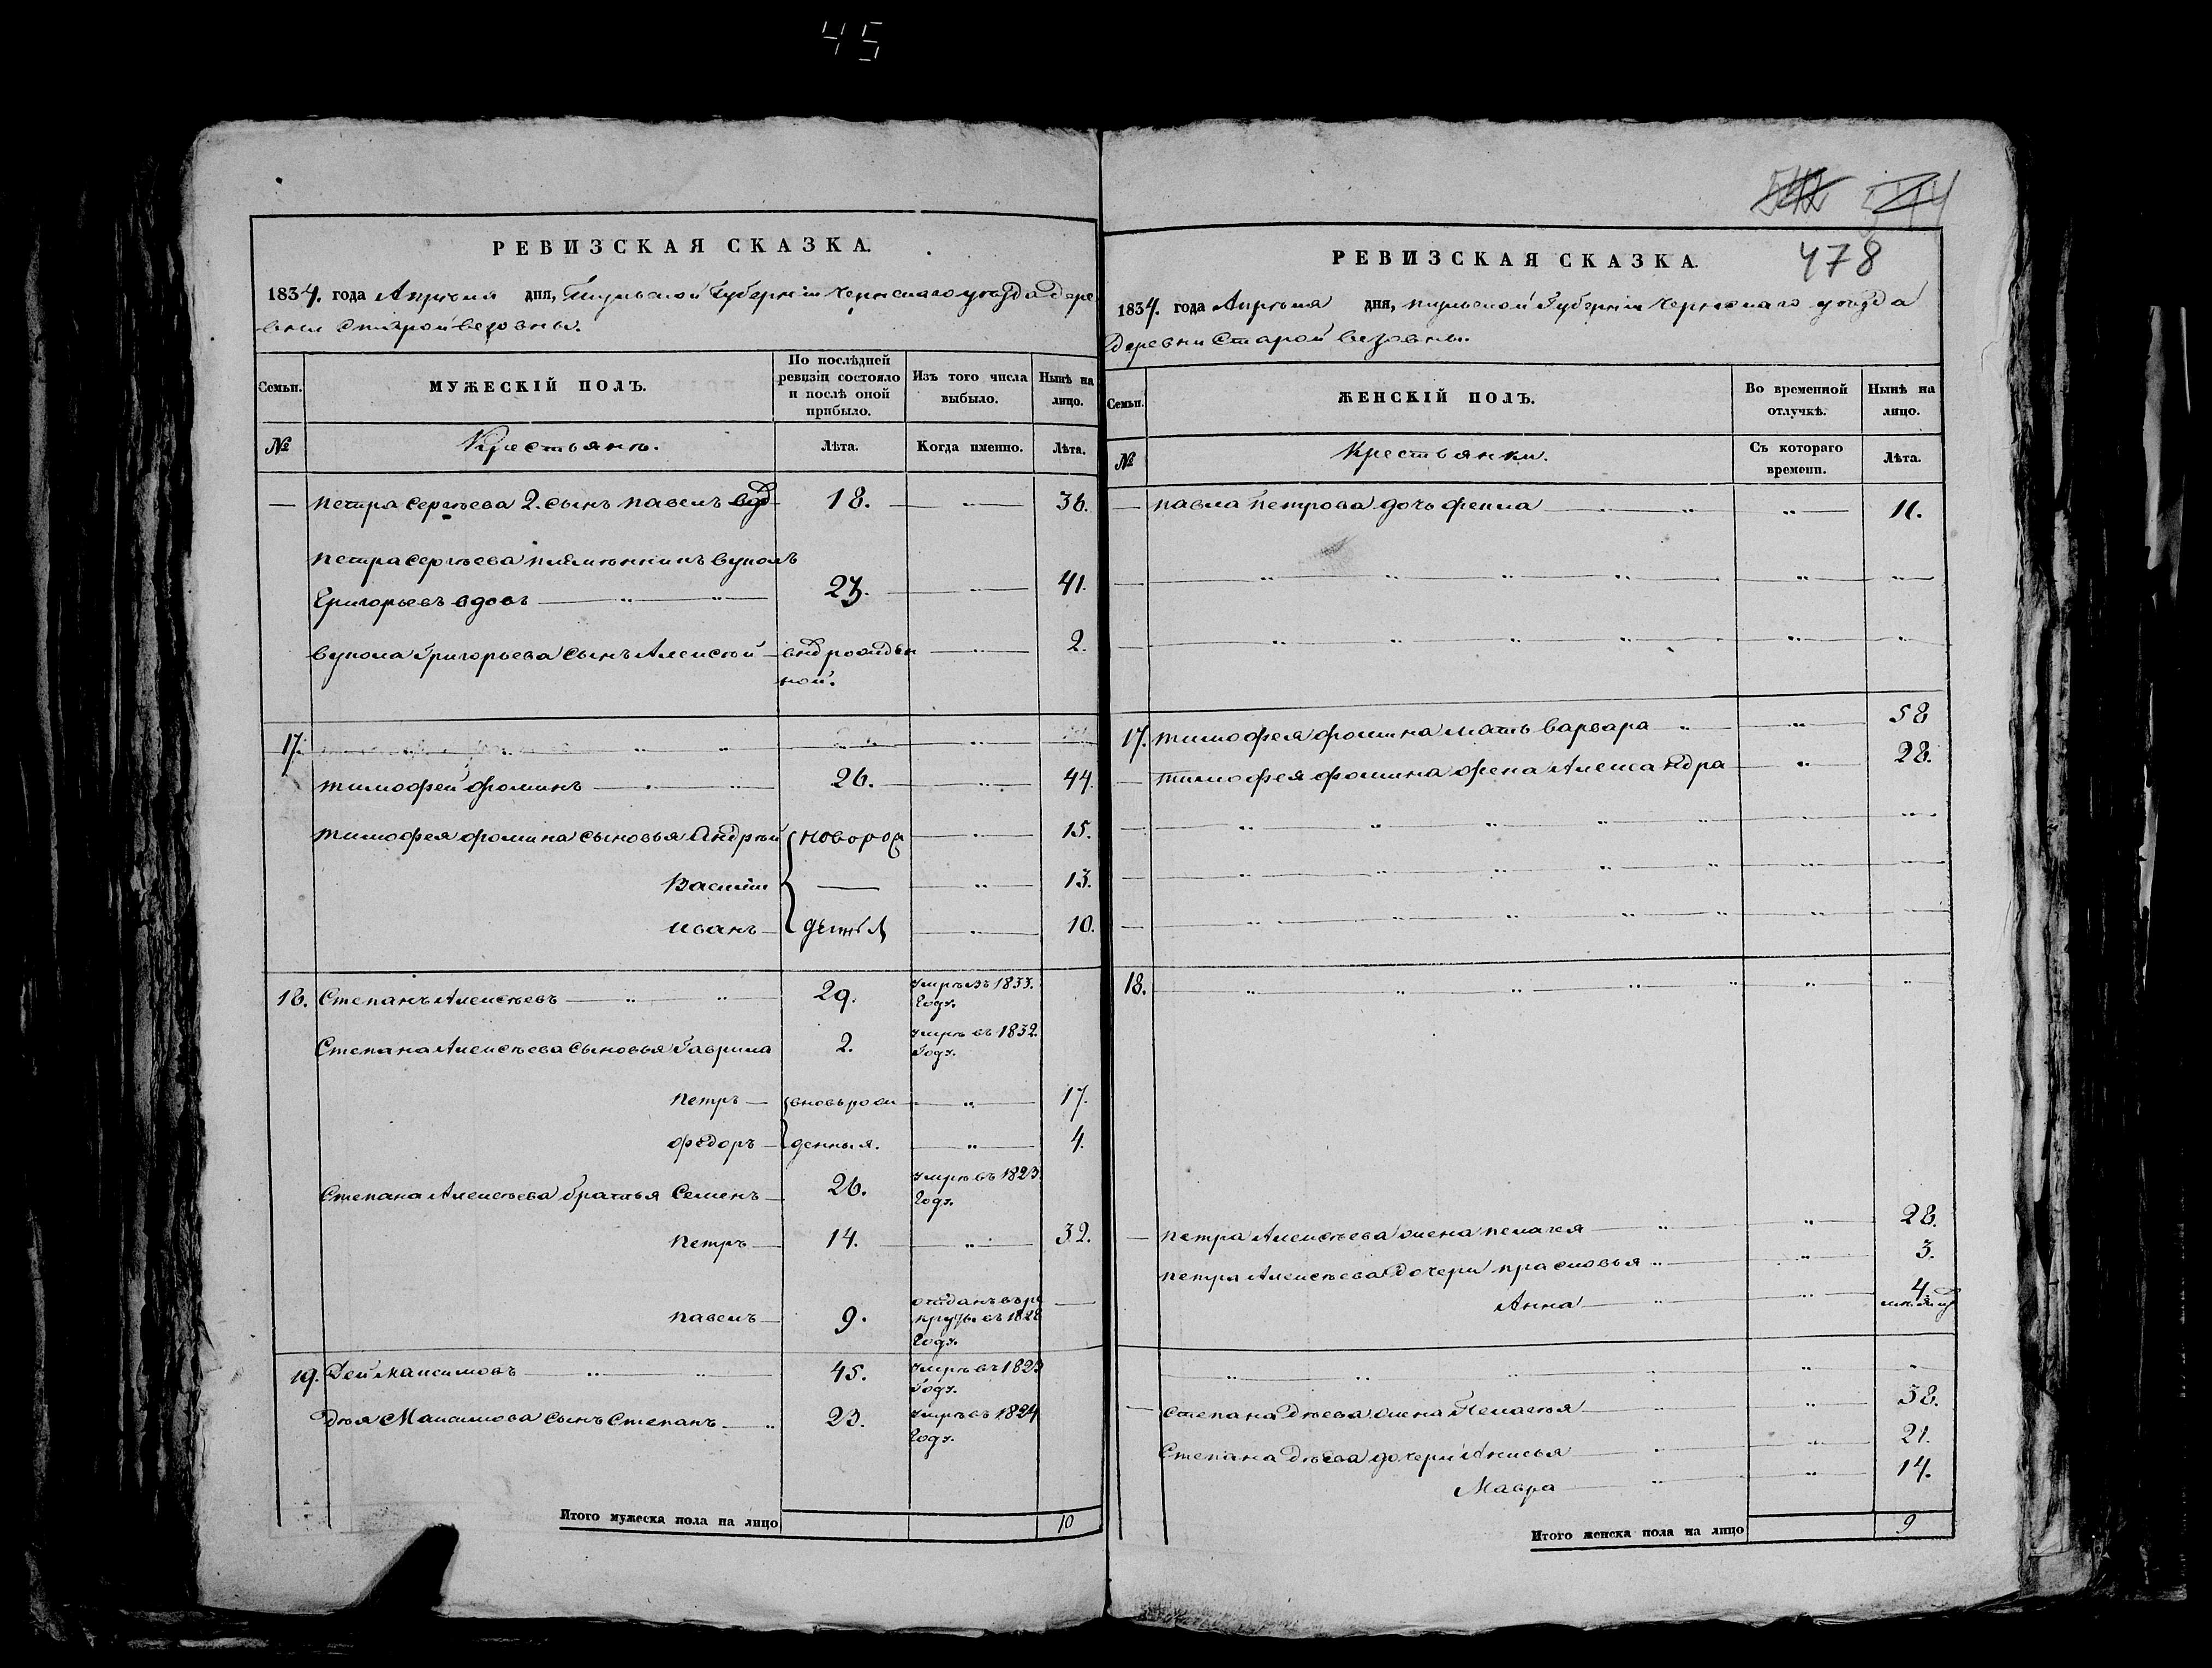 45
478
РЕВИЗСКАЯ СКАЗКА.
1834. года Апреля дня, Тульской Губернiи Чернскаго уезда дере
вни Старой везовны.
Семьи. МУЖЕСКІЙ ПОЛЪ. По послѣдней ревизіи состояло и послѣ оной прибыло. Изъ того числа выбыло. Нынѣ на лицо.
№ Крестьянъ. Лѣта. Когда именно. Лѣта.
— петра сергѣева 2. сынъ павелъ вдо 18. — 36.
петра сергѣева племянникъ вуколъ
Григорьевъ вдовъ — 23. — 41.
вукола Григорьева сынъ Алексѣй — — 2.
ной.
17.
тимофей фоминъ — 26. — 44.
тимофея фомина сыновья Андрѣй новорож — 15.
Василiи — — 13.
иванъ — — 10.
18. Степанъ Алексѣевъ — 29. умрѣ въ 1833.
Году.
Степана Алексѣева сыновья Гаврила 2. умрѣ въ 1832.
Году.
петръ — вновь рож — 17.
федоръ — денныя. — 4.
Степана Алексѣева братья Семенъ — 26. умрѣ въ 1823.
Году.
петръ — 14. — 32.
павелъ — 9. отданъ въ ре
круты въ 1828 —
Году.
19. Дей максимовъ — 45. умрѣ въ 1823
Году.
Дѣя Максимова сынъ Степанъ — 23. умрѣ въ 1824
Году.
Итого мужеска пола на лицо 10
РЕВИЗСКАЯ СКАЗКА.
1834. года Апреля дня, тульской Губернiи Чернскаго уезда
деревни Старой везовны.
Семьи. ЖЕНСКІЙ ПОЛЪ. Во временной отлучкѣ. Нынѣ на лицо.
№ Крестьянки. Съ котораго времени. Лѣта.
— павла Петрова дочь фекла — 11.
17. тимофея фомина мать варвара — 58
— тимофея фомина жена Александра — 28.
18.
— петра Алексѣева жена пелагея — 28.
петра Алексѣева дочери прасковья — 3.
Анна — 4
— степана Дѣева жена Пелагея — 38.
Степана Дѣева дочери Анисья — 21.
Мавра — 14.
Итого женска пола на лицо 9